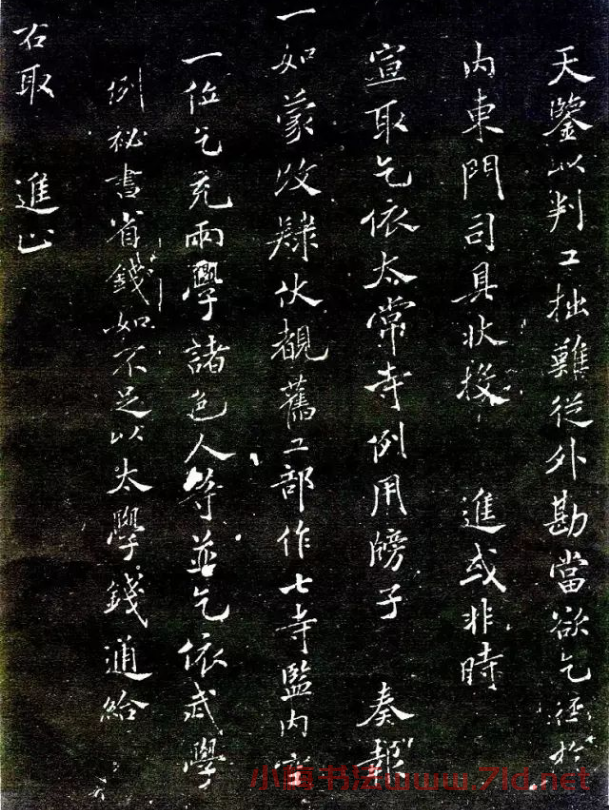 天鑒以判工拙難從外勘當欲乞徑於
内東門司具狀投 進或非時
宣取乞依太常寺例用牓子 奏報
一如蒙改肄伏覩舊工部作七寺監内空
一位乞充兩學諸色人等並乞依武學
例祕書省錢如不足以太學錢通給
右取 進止
小梅书法www.7ld.net